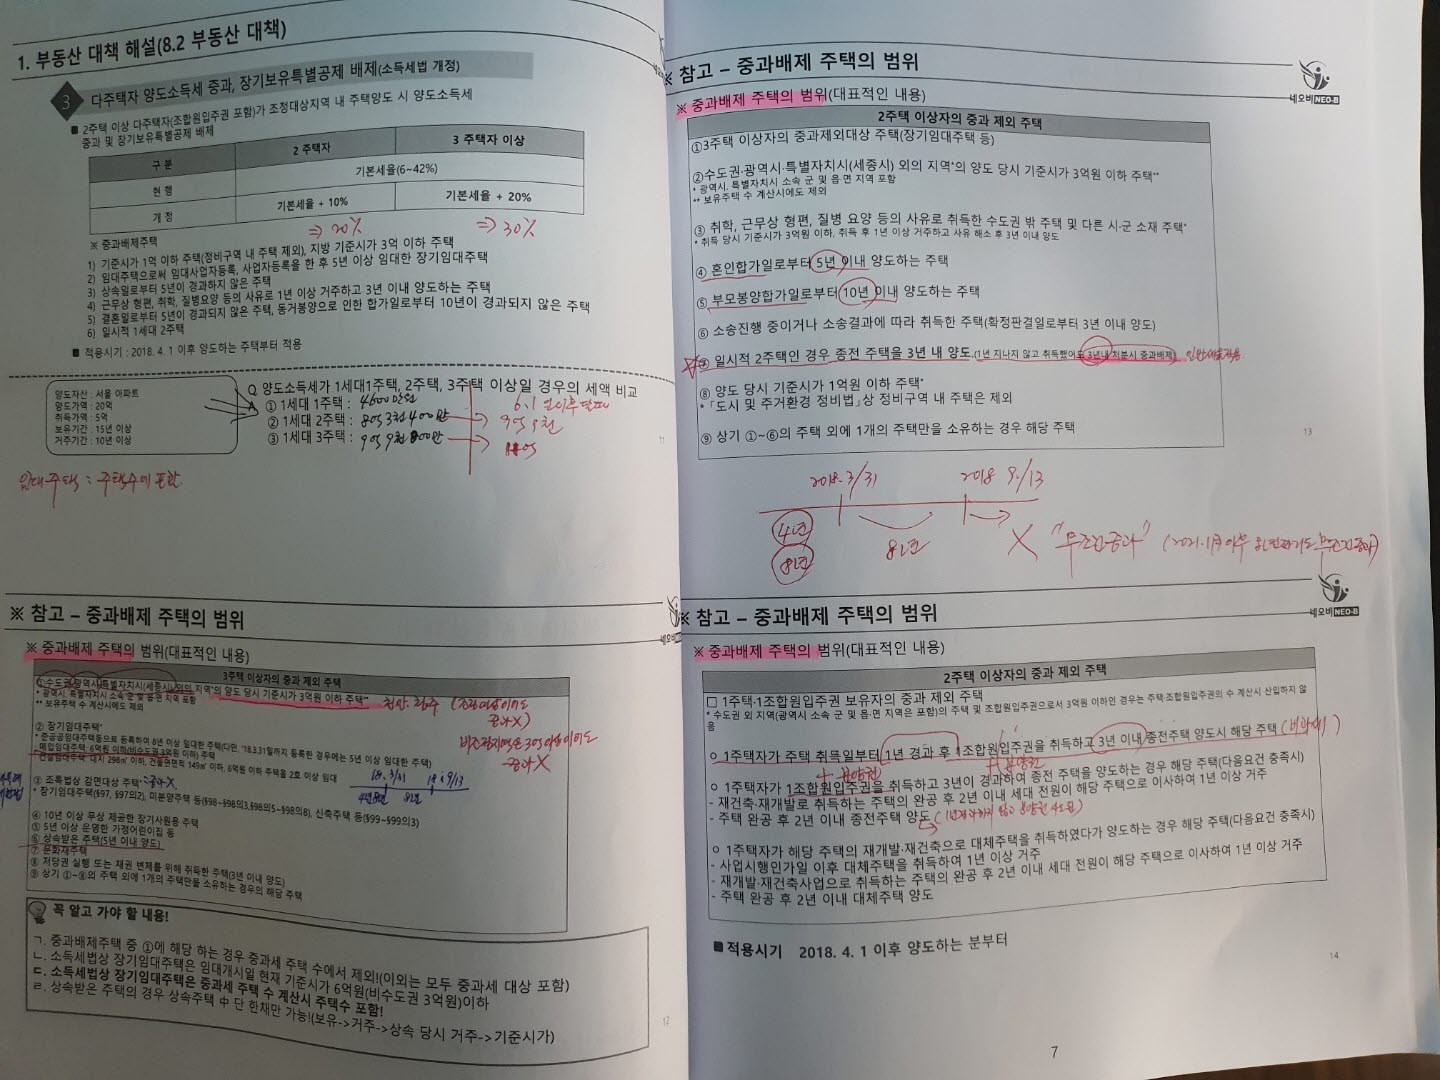 1. 부동산 대책 해설(8.2 부동산 대책)
3 다주택자 양도소득세 중과, 장기보유특별공제 배제(소득세법 개정)
■ 2주택 이상 다주택자(조합원입주권 포함)가 조정대상지역 내 주택양도 시 양도소득세
중과 및 장기보유특별공제 배제
구 분 2 주택자 3 주택자 이상
현 행 기본세율(6~42%)
개 정 기본세율 + 10% 기본세율 + 20%
⇒ 20% ⇒ 30%
※ 중과배제주택
1) 기준시가 1억 이하 주택(정비구역 내 주택 제외), 지방 기준시가 3억 이하 주택
2) 임대주택으로써 임대사업자등록, 사업자등록을 한 후 5년 이상 임대한 장기임대주택
3) 상속일로부터 5년이 경과하지 않은 주택
4) 근무상 형편, 취학, 질병요양 등의 사유로 1년 이상 거주하고 3년 이내 양도하는 주택
5) 결혼일로부터 5년이 경과되지 않은 주택, 동거봉양으로 인한 합가일로부터 10년이 경과되지 않은 주택
6) 일시적 1세대 2주택
■ 적용시기 : 2018. 4. 1 이후 양도하는 주택부터 적용
양도자산 : 서울 아파트
양도가액 : 20억
취득가액 : 5억
보유기간 : 15년 이상
거주기간 : 10년 이상
Q 양도소득세가 1세대1주택, 2주택, 3주택 이상일 경우의 세액 비교
A ① 1세대 1주택 : 4600만원
② 1세대 2주택 : 8억 3천 400만
③ 1세대 3주택 : 9억 9천 800만
11
임대주택 : 주택수에 포함
※ 참고 – 중과배제 주택의 범위
네오비 NEO-B
※ 중과배제 주택의 범위(대표적인 내용)
2주택 이상자의 중과 제외 주택
①3주택 이상자의 중과제외대상 주택(장기임대주택 등)
②수도권·광역시·특별자치시(세종시) 외의 지역*의 양도 당시 기준시가 3억원 이하 주택**
* 광역시. 특별자치시 소속 군 및 읍·면 지역 포함
** 보유주택 수 계산시에도 제외
③ 취학, 근무상 형편, 질병 요양 등의 사유로 취득한 수도권 밖 주택 및 다른 시·군 소재 주택*
* 취득 당시 기준시가 3억원 이하, 취득 후 1년 이상 거주하고 사유 해소 후 3년 이내 양도
④ 혼인합가일로부터 5년 이내 양도하는 주택
⑤ 부모봉양합가일로부터 10년 이내 양도하는 주택
⑥ 소송진행 중이거나 소송결과에 따라 취득한 주택(확정판결일로부터 3년 이내 양도)
⑦ 일시적 2주택인 경우 종전 주택을 3년 내 양도.(1년 지나지 않고 취득했어도 3년내 처분시 중과배제) 일반세율적용
⑧ 양도 당시 기준시가 1억원 이하 주택*
*「도시 및 주거환경 정비법」상 정비구역 내 주택은 제외
⑨ 상기 ①~⑥의 주택 외에 1개의 주택만을 소유하는 경우 해당 주택
13
2018. 3/31 2018 9./13
4년
8년
8년
X "무조건중과"
※ 참고 – 중과배제 주택의 범위
※ 중과배제 주택의 범위(대표적인 내용)
3주택 이상자의 중과 제외 주택
①수도권·광역시·특별자치시(세종시) 외의 지역*의 양도 당시 기준시가 3억원 이하 주택**
* 광역시. 특별자치시 소속 군 및 읍·면 지역 포함
** 보유주택 수 계산시에도 제외
② 장기임대주택*
* 준공공임대주택등으로 등록하여 8년 이상 임대한 주택(다만, '18.3.31일까지 등록한 경우에는 5년 이상 임대한 주택)
- 매입임대주택: 6억원 이하(비수도권 3억원 이하) 주택
- 건설임대주택: 대지 298㎡ 이하, 건물연면적 149㎡ 이하, 6억원 이하 주택을 2호 이상 임대
18. 3/31 18. 9/13
③ 조특법상 감면대상 주택* 중과X
* 장기임대주택(§97, §97의2), 미분양주택 등(§98~§98의3,§98의5~§98의8), 신축주택 등(§99~§99의3)
④ 10년 이상 무상 제공한 장기사원용 주택
⑤ 5년 이상 운영한 가정어린이집 등
⑥ 상속받은 주택(5년 이내 양도)
⑦ 문화재주택
⑧ 저당권 실행 또는 채권 변제를 위해 취득한 주택(3년 이내 양도)
⑨ 상기 ①~⑧의 주택 외에 1개의 주택만을 소유하는 경우의 해당 주택
꼭 알고 가야 할 내용!
ㄱ. 중과배제주택 중 ①에 해당 하는 경우 중과세 주택 수에서 제외!(이외는 모두 중과세 대상 포함)
ㄴ. 소득세법상 장기임대주택은 임대개시일 현재 기준시가 6억원(비수도권 3억원)이하
ㄷ. 소득세법상 장기임대주택은 중과세 주택 수 계산시 주택수 포함!
ㄹ. 상속받은 주택의 경우 상속주택 中 단 한채만 가능!(보유->거주->상속 당시 거주->기준시가)
12
※ 참고 – 중과배제 주택의 범위
네오비 NEO-B
※ 중과배제 주택의 범위(대표적인 내용)
2주택 이상자의 중과 제외 주택
□ 1주택·1조합원입주권 보유자의 중과 제외 주택
* 수도권 외 지역(광역시 소속 군 및 읍·면 지역은 포함)의 주택 및 조합원입주권으로서 3억원 이하인 경우는 주택·조합원입주권의 수 계산시 산입하지 않
음
○ 1주택자가 주택 취득일부터 1년 경과 후 1조합원입주권을 취득하고 3년 이내 종전주택 양도시 해당 주택 (비과세)
+ 분양권
분양권
○ 1주택자가 1조합원입주권을 취득하고 3년이 경과하여 종전 주택을 양도하는 경우 해당 주택(다음요건 충족시)
- 재건축·재개발로 취득하는 주택의 완공 후 2년 이내 세대 전원이 해당 주택으로 이사하여 1년 이상 거주
- 주택 완공 후 2년 이내 종전주택 양도
○ 1주택자가 해당 주택의 재개발·재건축으로 대체주택을 취득하였다가 양도하는 경우 해당 주택(다음요건 충족시)
- 사업시행인가일 이후 대체주택을 취득하여 1년 이상 거주
- 재개발·재건축사업으로 취득하는 주택의 완공 후 2년 이내 세대 전원이 해당 주택으로 이사하여 1년 이상 거주
- 주택 완공 후 2년 이내 대체주택 양도
■ 적용시기 2018. 4. 1 이후 양도하는 분부터
14
7